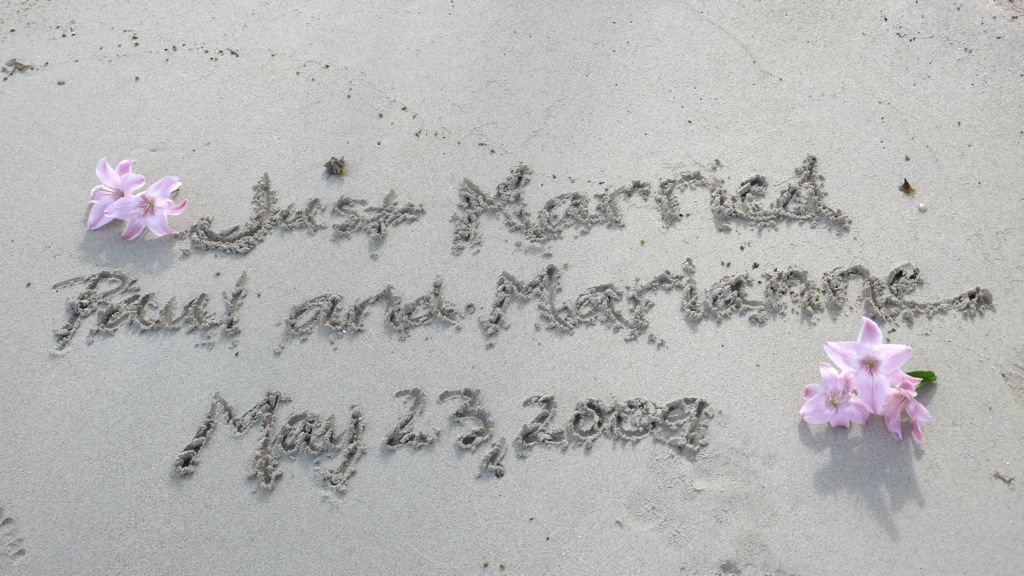 Just Married
Paul and Marianne
May 23, 2009